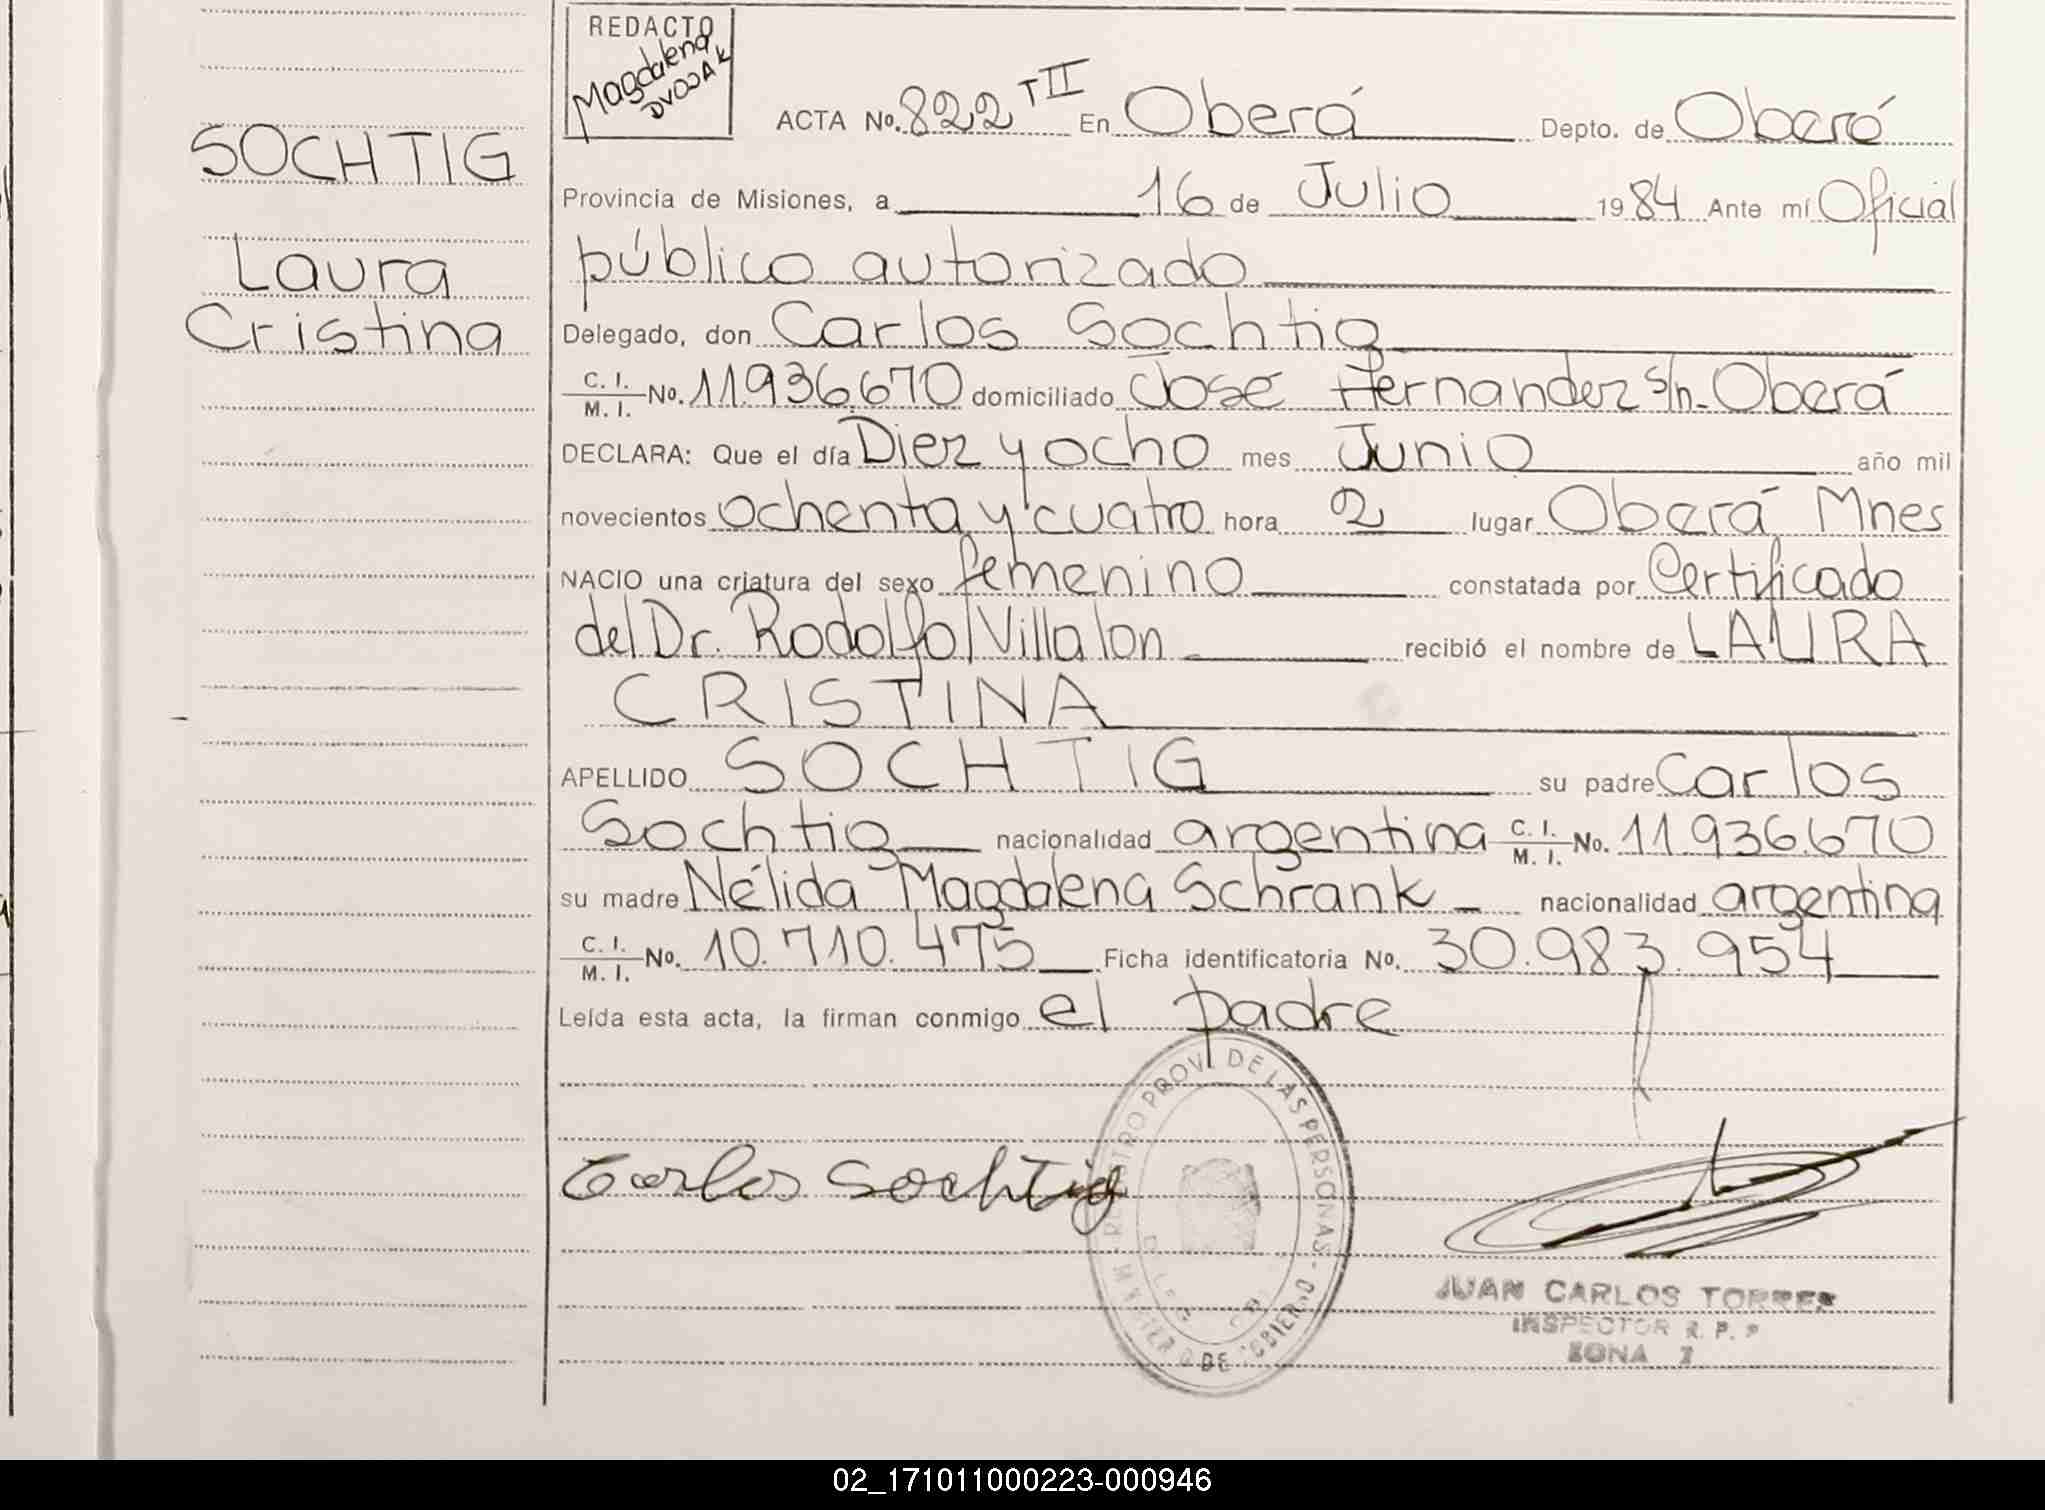 REDACTO
Magdalena
DVOJAK
SOCHTIG
Laura
Cristina
ACTA No. 822 T II En Oberá Depto. de Oberá
Provincia de Misiones, a 16 de Julio 1984 Ante mí Oficial
público autorizado
Delegado, don Carlos Sochtig
C. I. / M. I. No. 11.936.670 domiciliado José Hernandez s/n. Oberá
DECLARA: Que el día Diez y ocho mes Junio año mil
novecientos ochenta y cuatro hora 2 lugar Oberá Mnes
NACIO una criatura del sexo femenino constatada por Certificado
del Dr. Rodolfo Villalon recibió el nombre de LAURA
CRISTINA
APELLIDO SOCHTIG su padre Carlos
Sochtig nacionalidad argentina C. I. / M. I. No. 11.936.670
su madre Nélida Magdalena Schrank nacionalidad argentina
C. I. / M. I. No. 10.710.475 Ficha identificatoria No. 30.983.954
Leída esta acta, la firman conmigo el padre
Carlos Sochtig
REGISTRO PROV. DE LAS PERSONAS - MINISTERIO DE GOBIERNO
JUAN CARLOS TORRES
INSPECTOR R. P. P
ZONA I
02_171011000223-000946